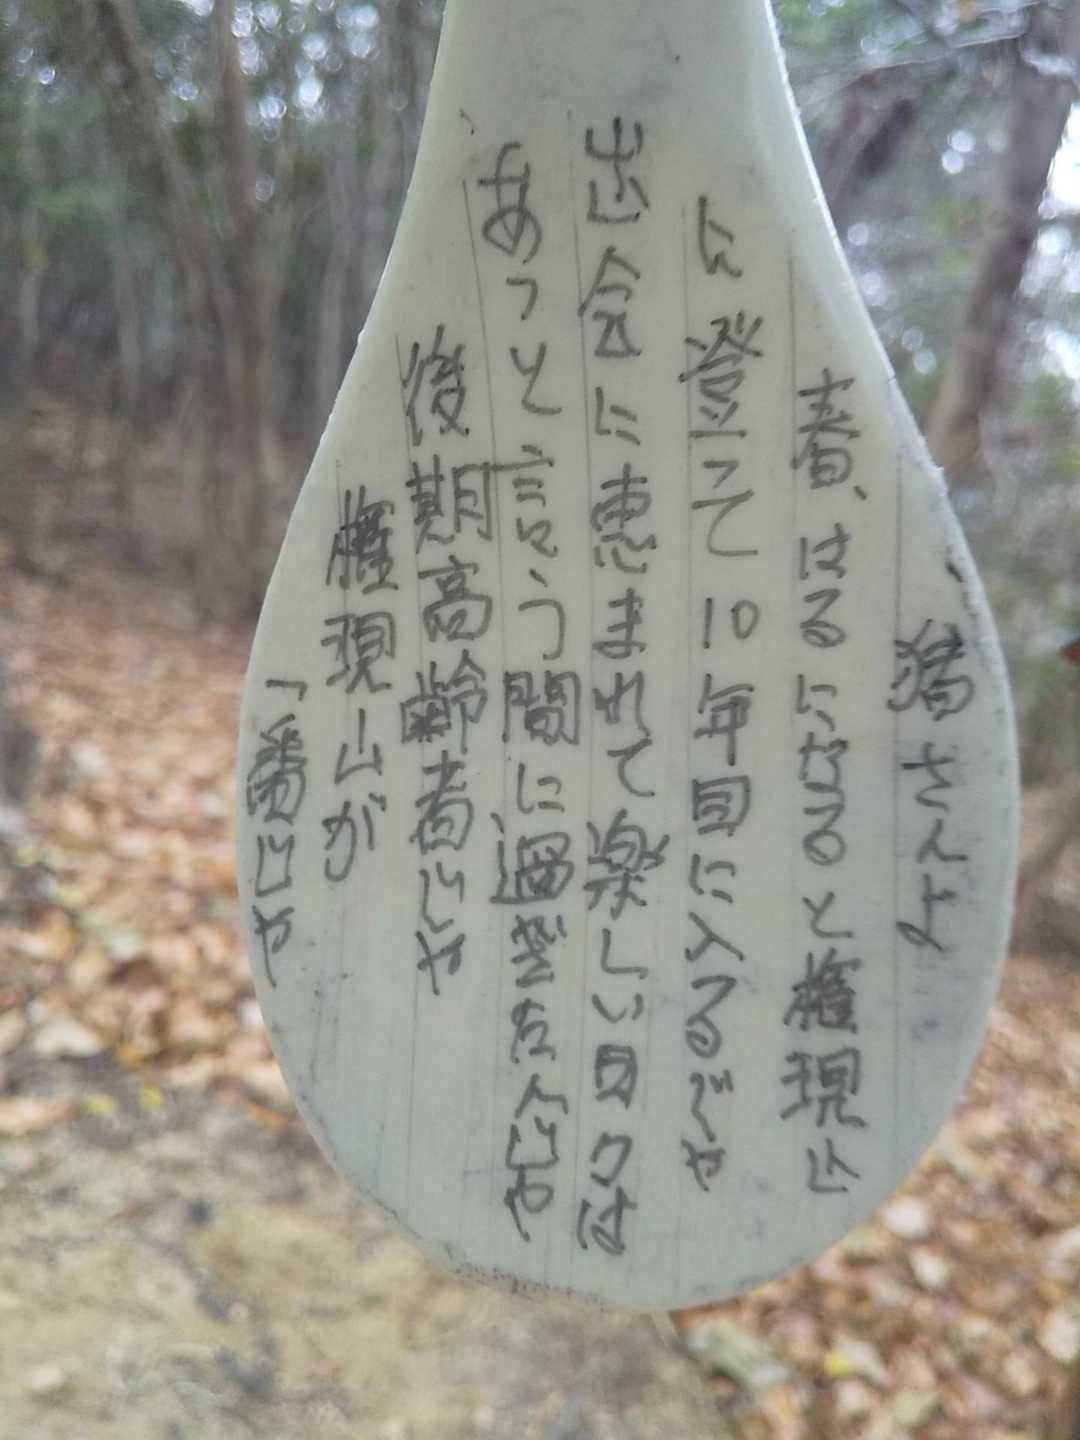 猪さんよ
春、はるになると権現山
に登って10年目に入るぞや
出会に恵まれて楽しい日々は
あっと言う間に過ぎたんじゃ
後期高齢者じゃ
権現山が
「宝じゃ